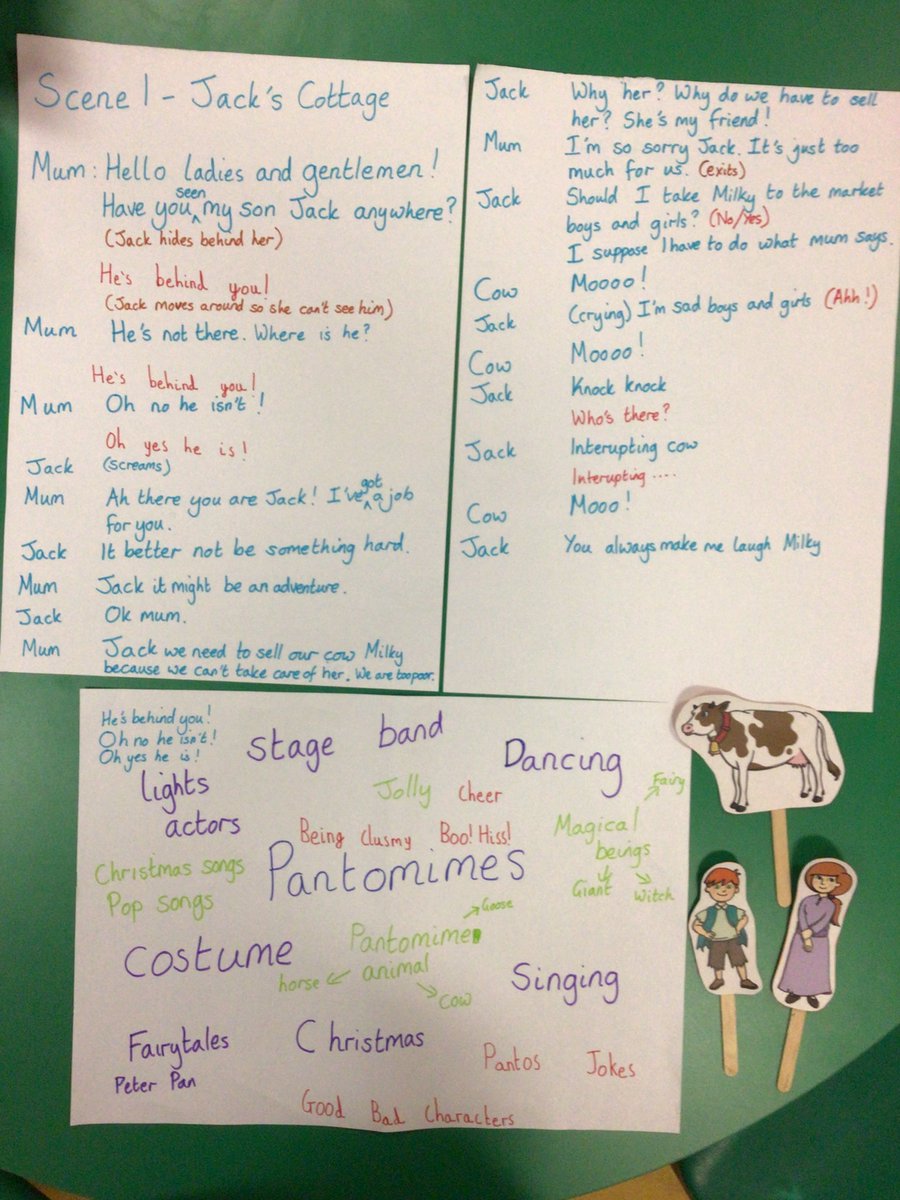 Scene 1 - Jack's Cottage
Mum: Hello ladies and gentlemen!
Have you seen my son Jack anywhere?
(Jack hides behind her)
He's behind you!
(Jack moves around so she can't see him)
Mum He's not there. Where is he?
He's behind you!
Mum Oh no he isn't!
Oh yes he is!
Jack (screams)
Mum Ah there you are Jack! I've got a job
for you.
Jack It better not be something hard.
Mum Jack it might be an adventure.
Jack Ok mum.
Mum Jack we need to sell our cow Milky
because we can't take care of her. We are too poor.
Jack Why her? Why do we have to sell
her? She's my friend!
Mum I'm so sorry Jack. It's just too
much for us. (exits)
Jack Should I take Milky to the market
boys and girls? (No/Yes)
I suppose I have to do what mum says.
Cow Moooo!
Jack (crying) I'm sad boys and girls (Ahh!)
Cow Moooo!
Jack Knock knock
Who's there?
Jack Interupting cow
Interupting ....
Cow Mooo!
Jack You always make me laugh Milky
He's behind you!
Oh no he isn't!
Oh yes he is!
stage band
Dancing
lights
Jolly Cheer
Fairy
actors
Being Clusmy Boo! Hiss!
Magical
beings
Giant Witch
Christmas songs
Pop songs
Pantomimes
Goose
Pantomime
animal
horse
Cow
Costume
Singing
Fairytales
Peter Pan
Christmas
Pantos Jokes
Good Bad Characters